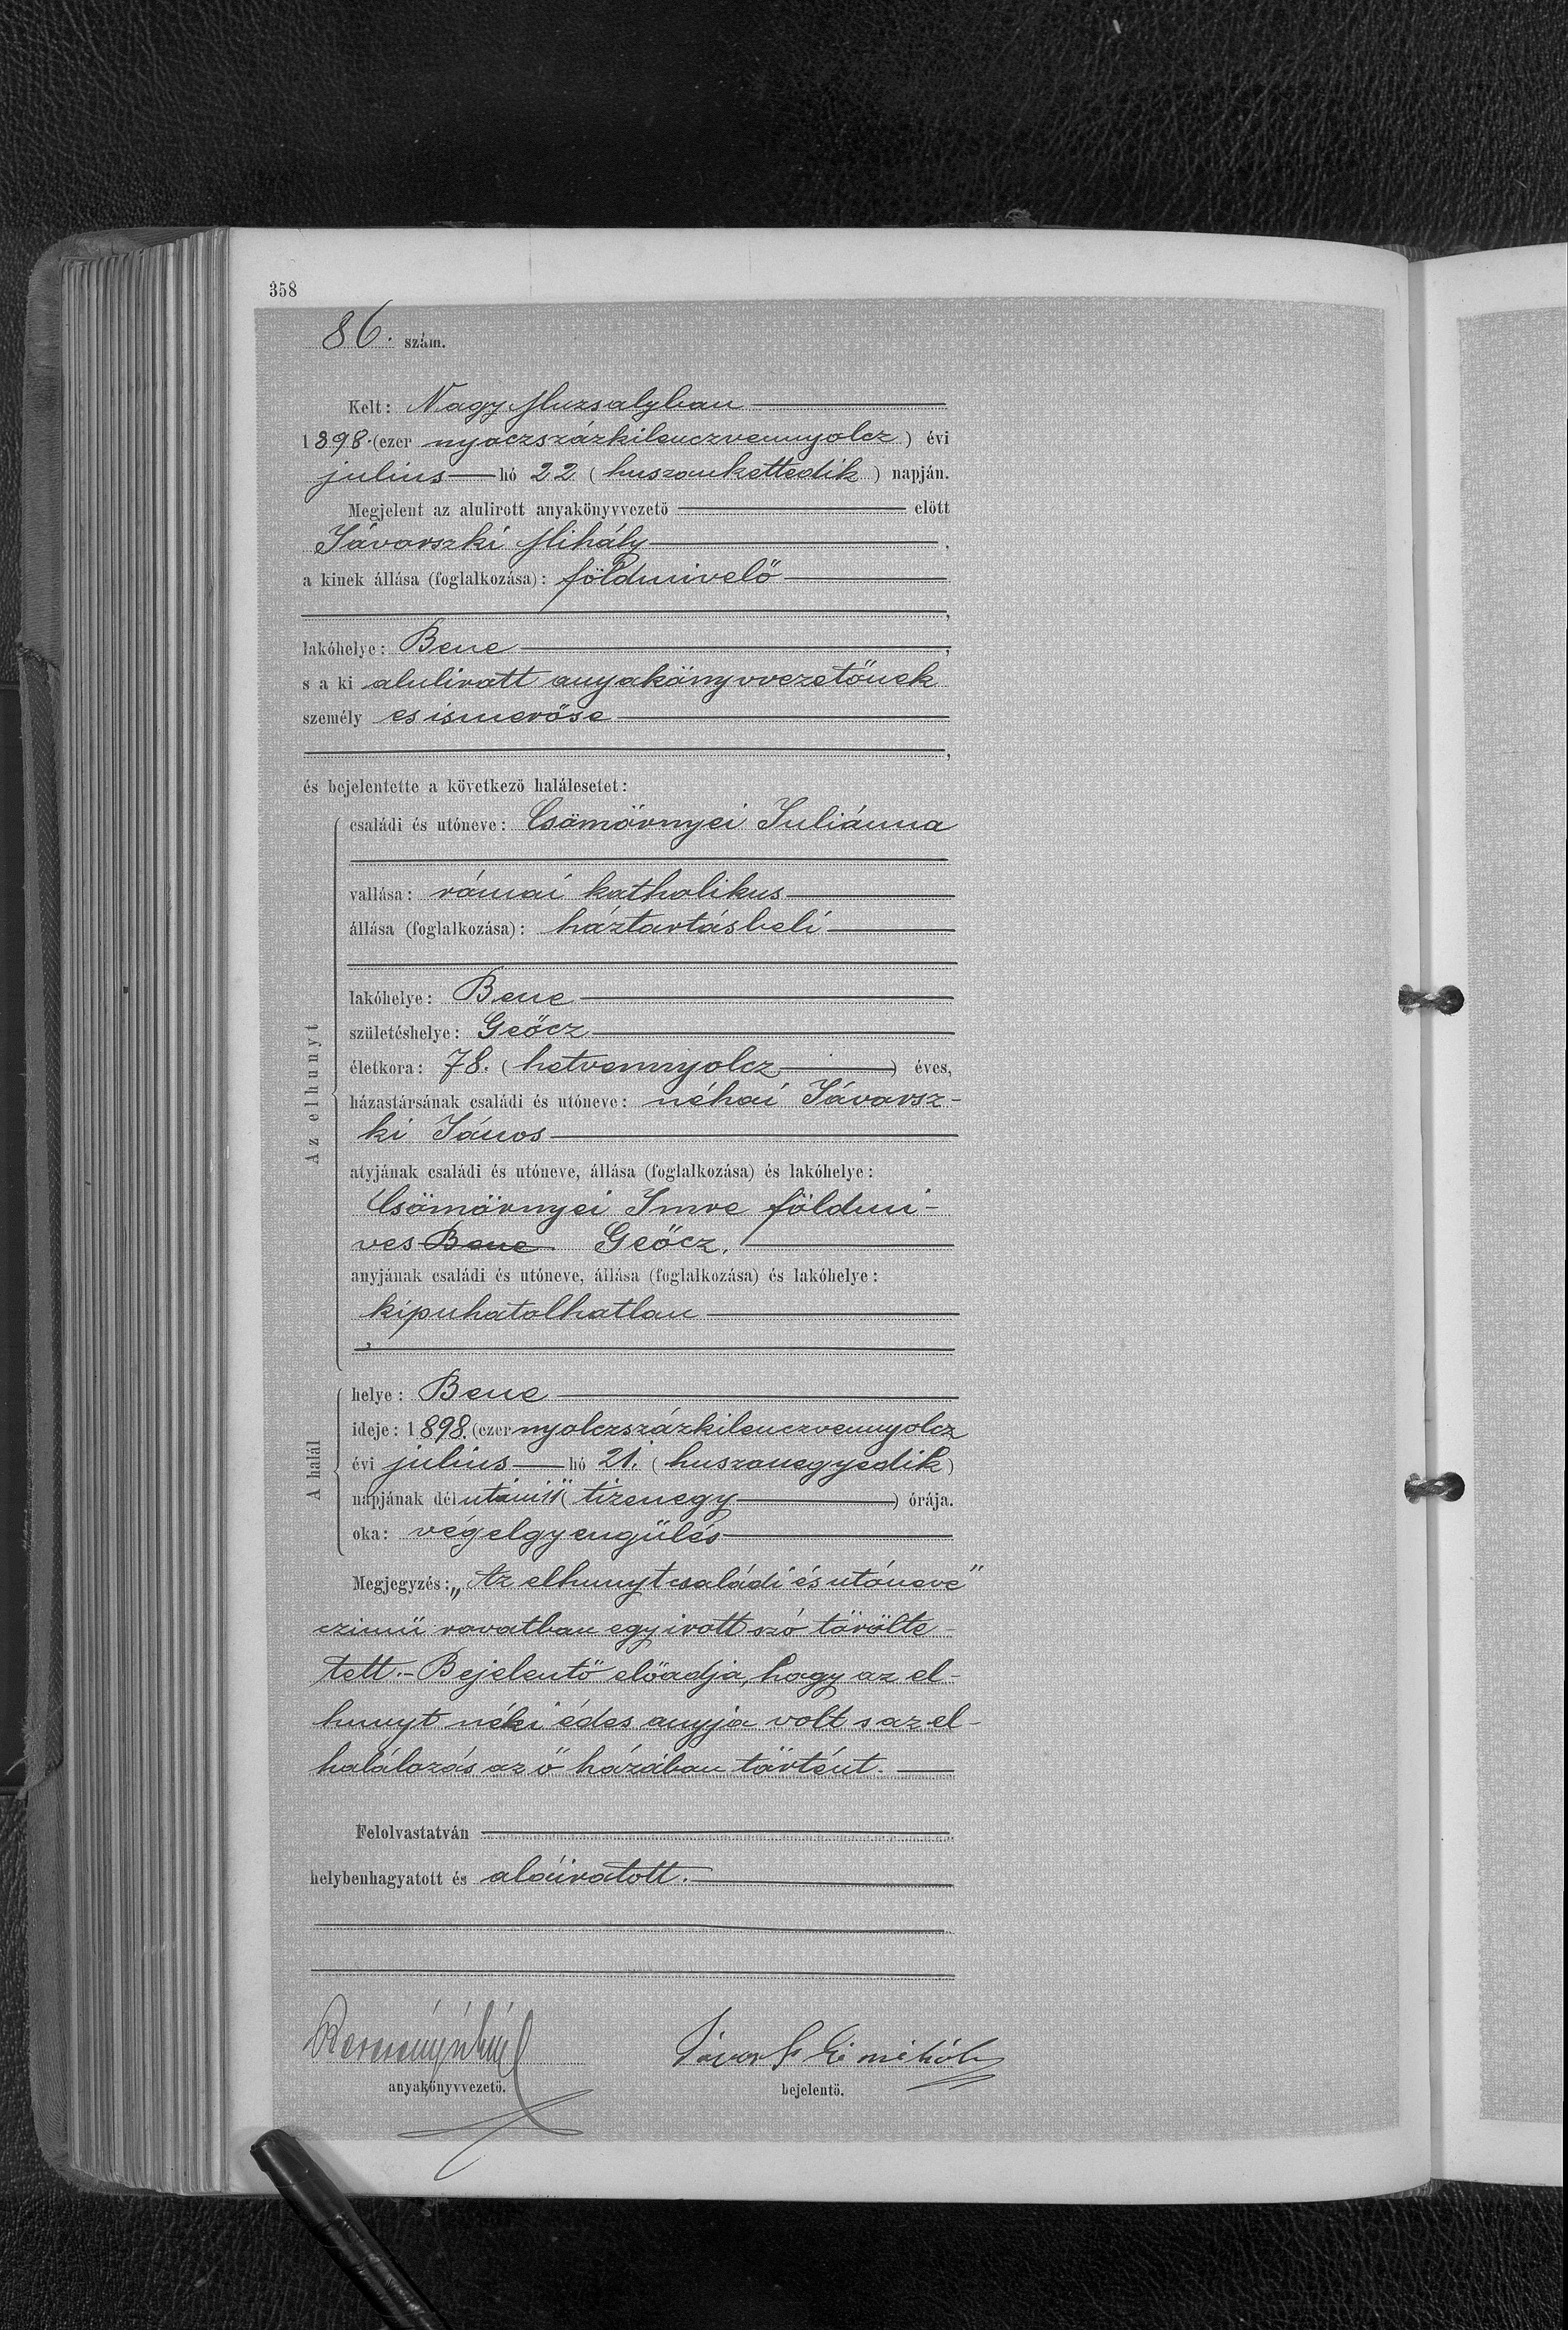 358
86. szám.
Kelt: Nagy Muzsalyban
1898. (ezer nyoczszázkilenczvennyolcz) évi
julius hó 22 (huszonkettedik) napján.
Megjelent az alulirott anyakönyvvezető előtt
Jávorszki Mihály
a kinek állása (foglalkozása): földmivelő
,
lakóhelye: Bene,
s a ki alulirott anyakönyvvezetőnek
személy es ismerőse
,
és bejelentette a következő halálesetet:
Az elhunyt
családi és utóneve: Csömörnyei Juliánna
vallása: római katholikus
állása (foglalkozása): háztartásbeli
lakóhelye: Bene
születéshelye: Geőcz
életkora: 78. (hetvennyolcz) éves,
házastársának családi és utóneve: néhai Jávorsz-
ki János
atyjának családi és utóneve, állása (foglalkozása) és lakóhelye:
Csömörnyei Imre földmi-
ves Bene Geőcz.
anyjának családi és utóneve, állása (foglalkozása) és lakóhelye:
kipuhatolhatlan
A halál
helye: Bene
ideje: 1898. (ezer nyolczszázkilenczvennyolcz
évi julius hó 21. (huszonegyedik)
napjának délutáni 11 (tizenegy) órája.
oka: végelgyengülés
Megjegyzés: „Az elhunyt családi és utóneve"
czimü rovatban egy irott szó törölte-
tett. - Bejelentő előadja, hogy az el-
hunyt néki édes anyja volt s az el-
halálozás az ő házában történt.
Felolvastatván
helybenhagyatott és aláiratott.
anyakönyvvezető.
Jávorszki mihály
bejelentő.